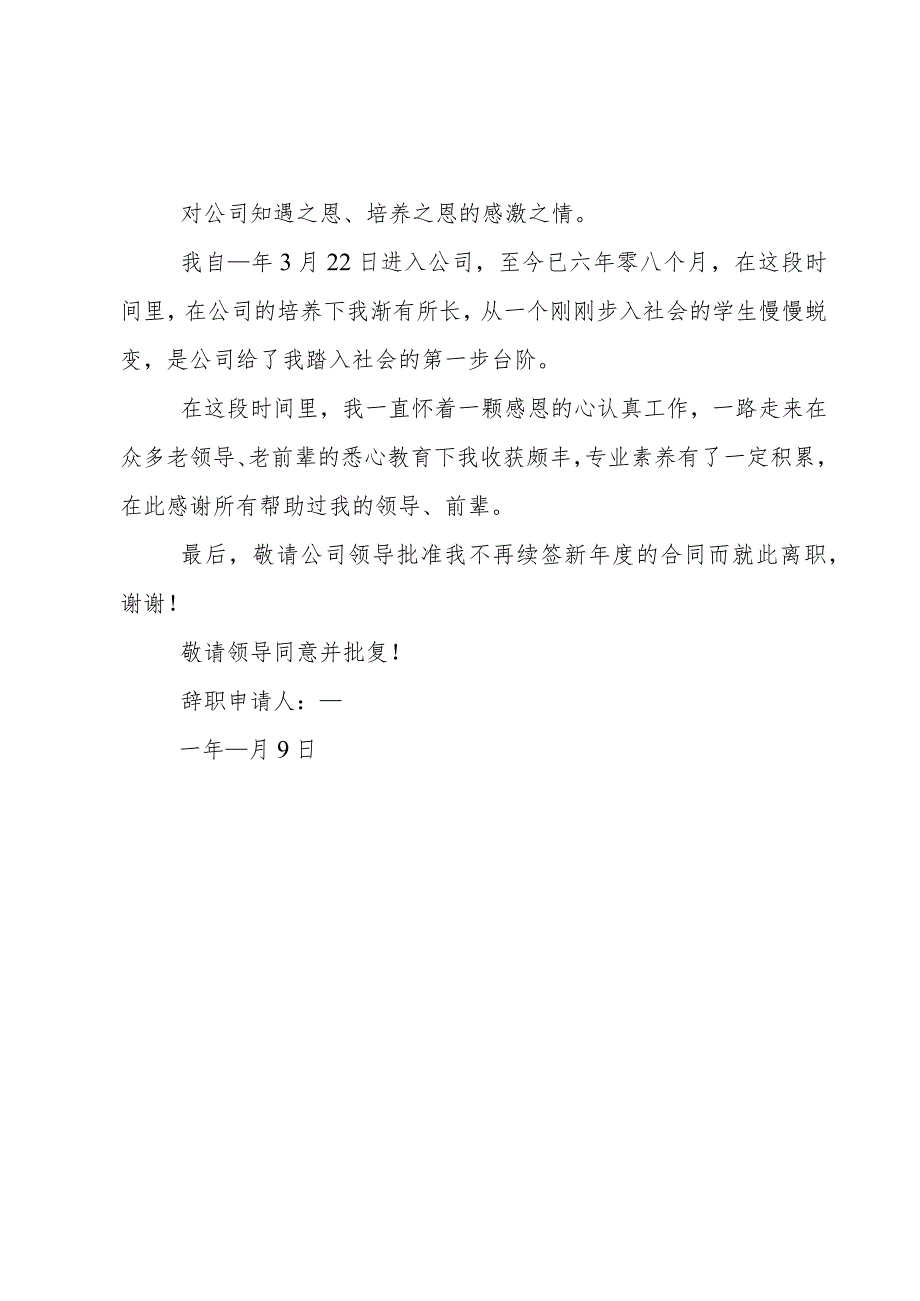 对公司知遇之恩、培养之恩的感激之情。
我自—年 3 月 22 日进入公司，至今已六年零八个月，在这段时
间里，在公司的培养下我渐有所长，从一个刚刚步入社会的学生慢慢蜕
变，是公司给了我踏入社会的第一步台阶。
在这段时间里，我一直怀着一颗感恩的心认真工作，一路走来在
众多老领导、老前辈的悉心教育下我收获颇丰，专业素养有了一定积累，
在此感谢所有帮助过我的领导、前辈。
最后，敬请公司领导批准我不再续签新年度的合同而就此离职，
谢谢！
敬请领导同意并批复！
辞职申请人：—
一年—月 9 日